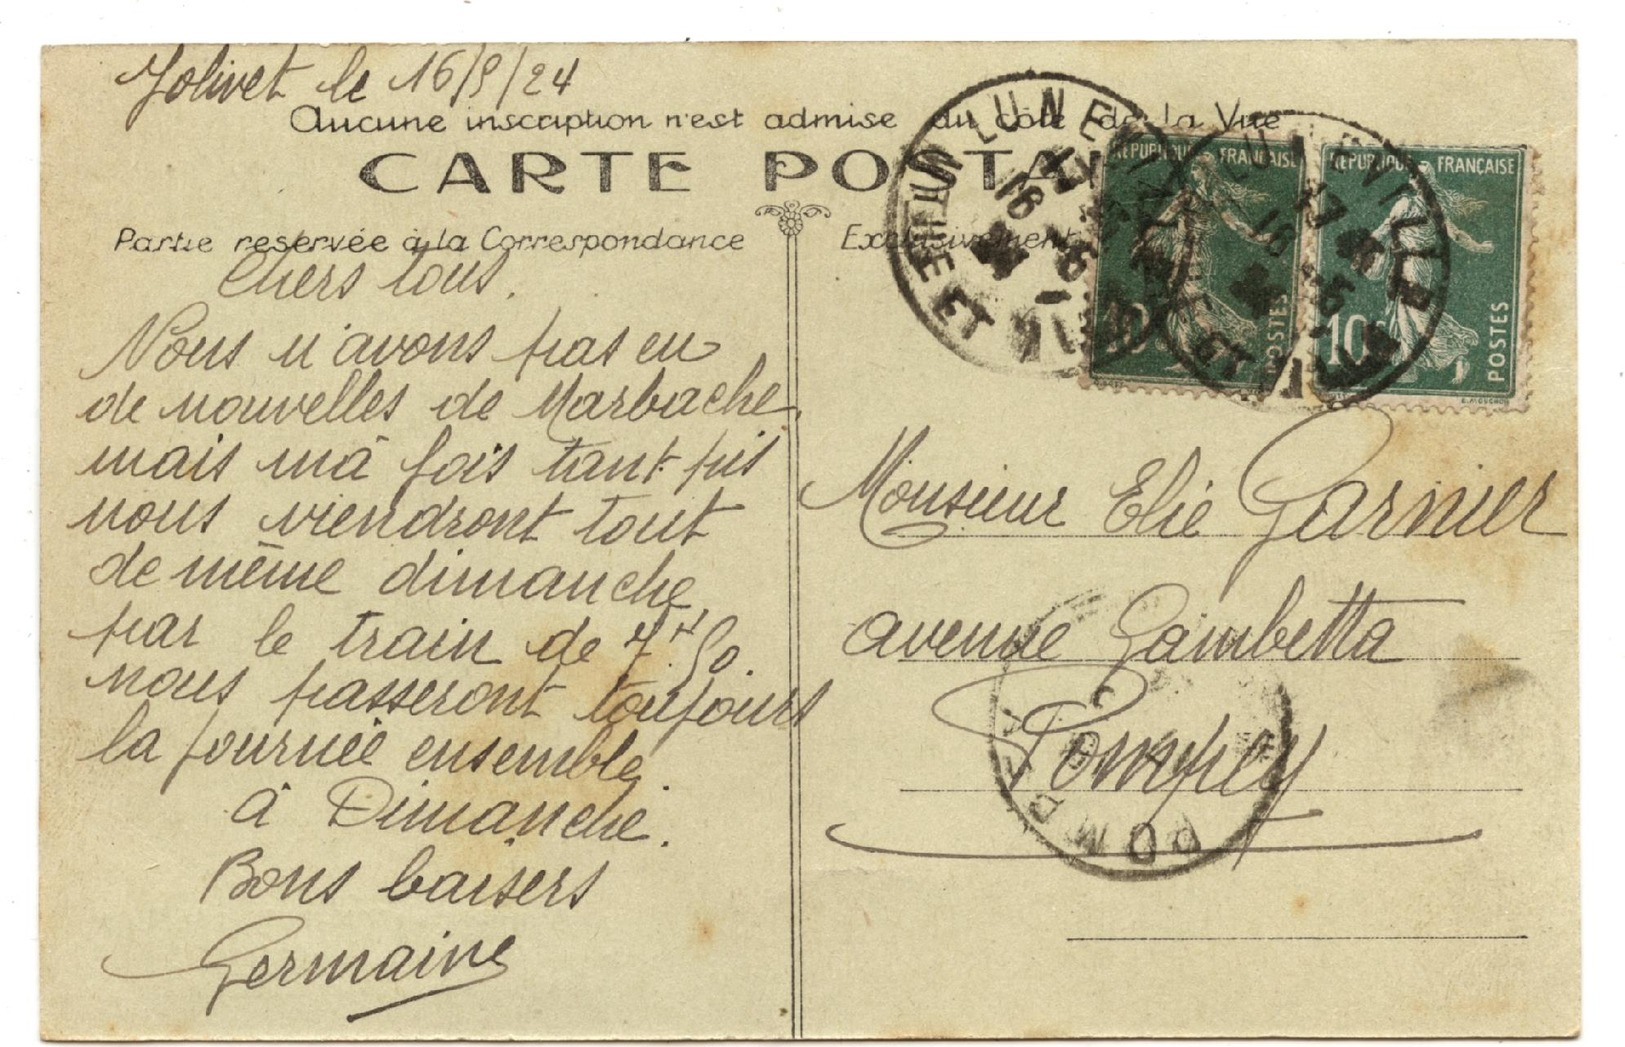 Jolivet le 16/5/24
Aucune inscription n'est admise du côté de la Vue
CARTE POSTALE
Partie réservée à la Correspondance
Exclusivement
Chers tous.
Nous n'avons pas eu
de nouvelles de Marbache
mais mà fois tant pis
nous viendront tout
de même dimanche
par le train de 7H50
nous passeront toujours
la journée ensemble,
à Dimanche.
Bons baisers
Germaine
LUNEVILLE
MEURTHE ET MLLE
16 -5
LUNEVILLE
17
16 -5
ET
REPUBLIQUE FRANÇAISE
10
POSTES
REPUBLIQUE FRANÇAISE
10
POSTES
Monsieur Elie Garnier
avenue Gambetta
Pompey
POMPEY